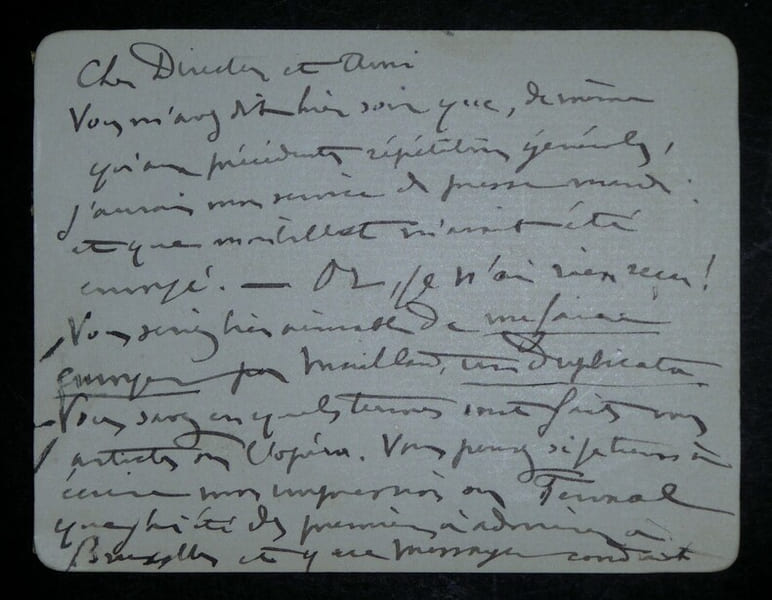 Cher Directeur et Ami
Vous m'avez dit hier soir que, de même
qu'aux précédentes répétitions générales,
j'aurais mon service de presse mardi :
et que mon billet m'avait été
envoyé. — Or, je n'ai rien reçu !
Vous seriez bien aimable de me faire
envoyer par Maillard, un Duplicata
Vous savez en quels termes sont faits mes
articles sur l'Opéra. Vous pensez si je tiens à
écrire mon impression sur Fervaal
que j'ai été des premiers à admirer à
Bruxelles et que Messager conduit